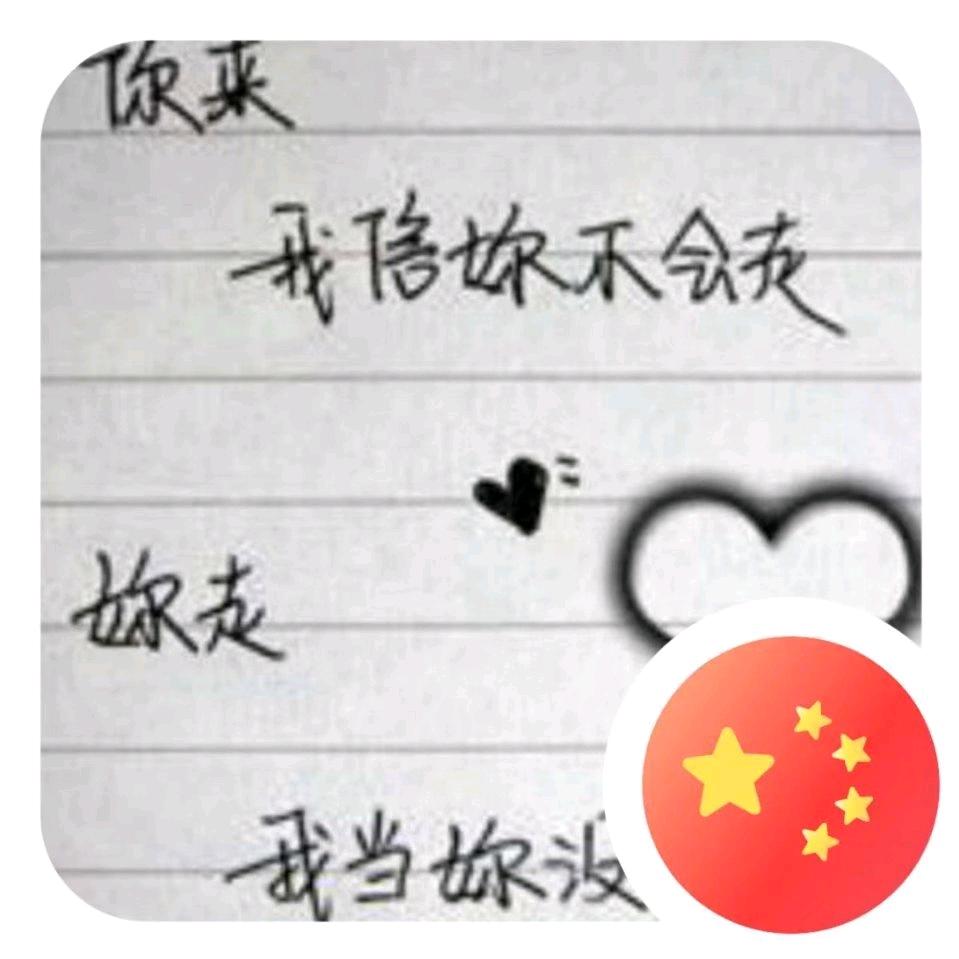 你来
我陪妳不会走
妳走
我当妳没